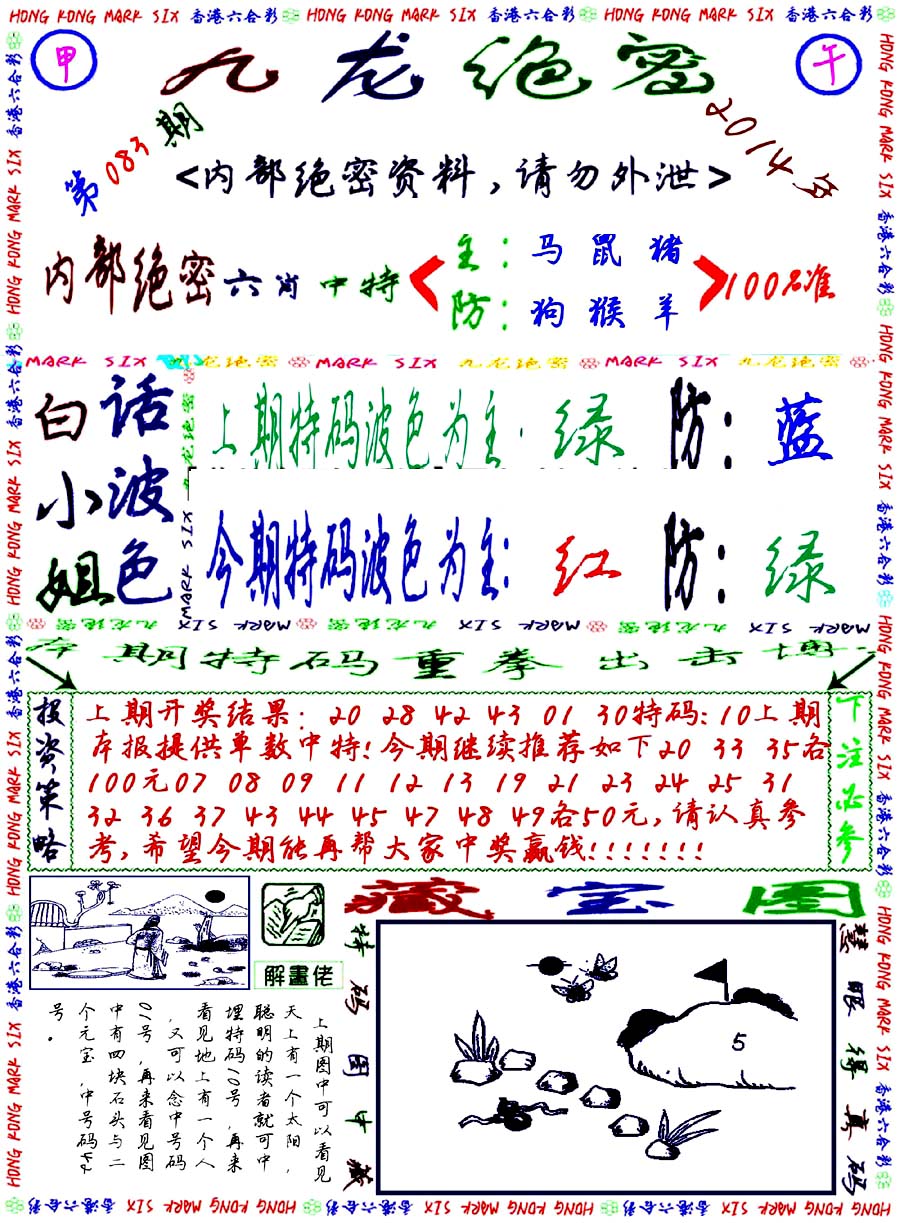 HONG KONG MARK SIX 香港六合彩 HONG KONG MARK SIX 香港六合彩 HONG KONG MARK SIX 香港六合彩
甲
九龙绝密
午
第083期
2014年
<内部绝密资料，请勿外泄>
内部绝密六肖中特
主：马 鼠 猪
防：狗 猴 羊
100%准
MARK SIX 九龙绝密 MARK SIX 九龙绝密 MARK SIX 九龙绝密
白话
小波
姐色
上期特码波色为主：绿 防：蓝
今期特码波色为主：红 防：绿
九龙绝密 MARK SIX 九龙绝密 MARK SIX 九龙绝密 MARK SIX
本期特码重拳出击博
投资策略
上期开奖结果：20 28 42 43 01 30特码：10上期
本报提供单数中特！今期继续推荐如下20 33 35各
100元07 08 09 11 12 13 19 21 23 24 25 31
32 36 37 43 44 45 47 48 49各50元，请认真参
考，希望今期能再帮大家中奖赢钱！！！！！！！
下注必参
解畫佬
藏宝图
特码图中藏
慧眼得真码
5
上期图中可以看见
天上有一个太阳，
聪明的读者就可中
埋特码10号，再来
看见地上有一个人
，又可以念中号码
01号，再来看见图
中有四块石头与二
个元宝，中号码42
号。
HONG KONG MARK SIX 香港六合彩 HONG KONG MARK SIX 香港六合彩 HONG KONG MARK SIX 香港六合彩